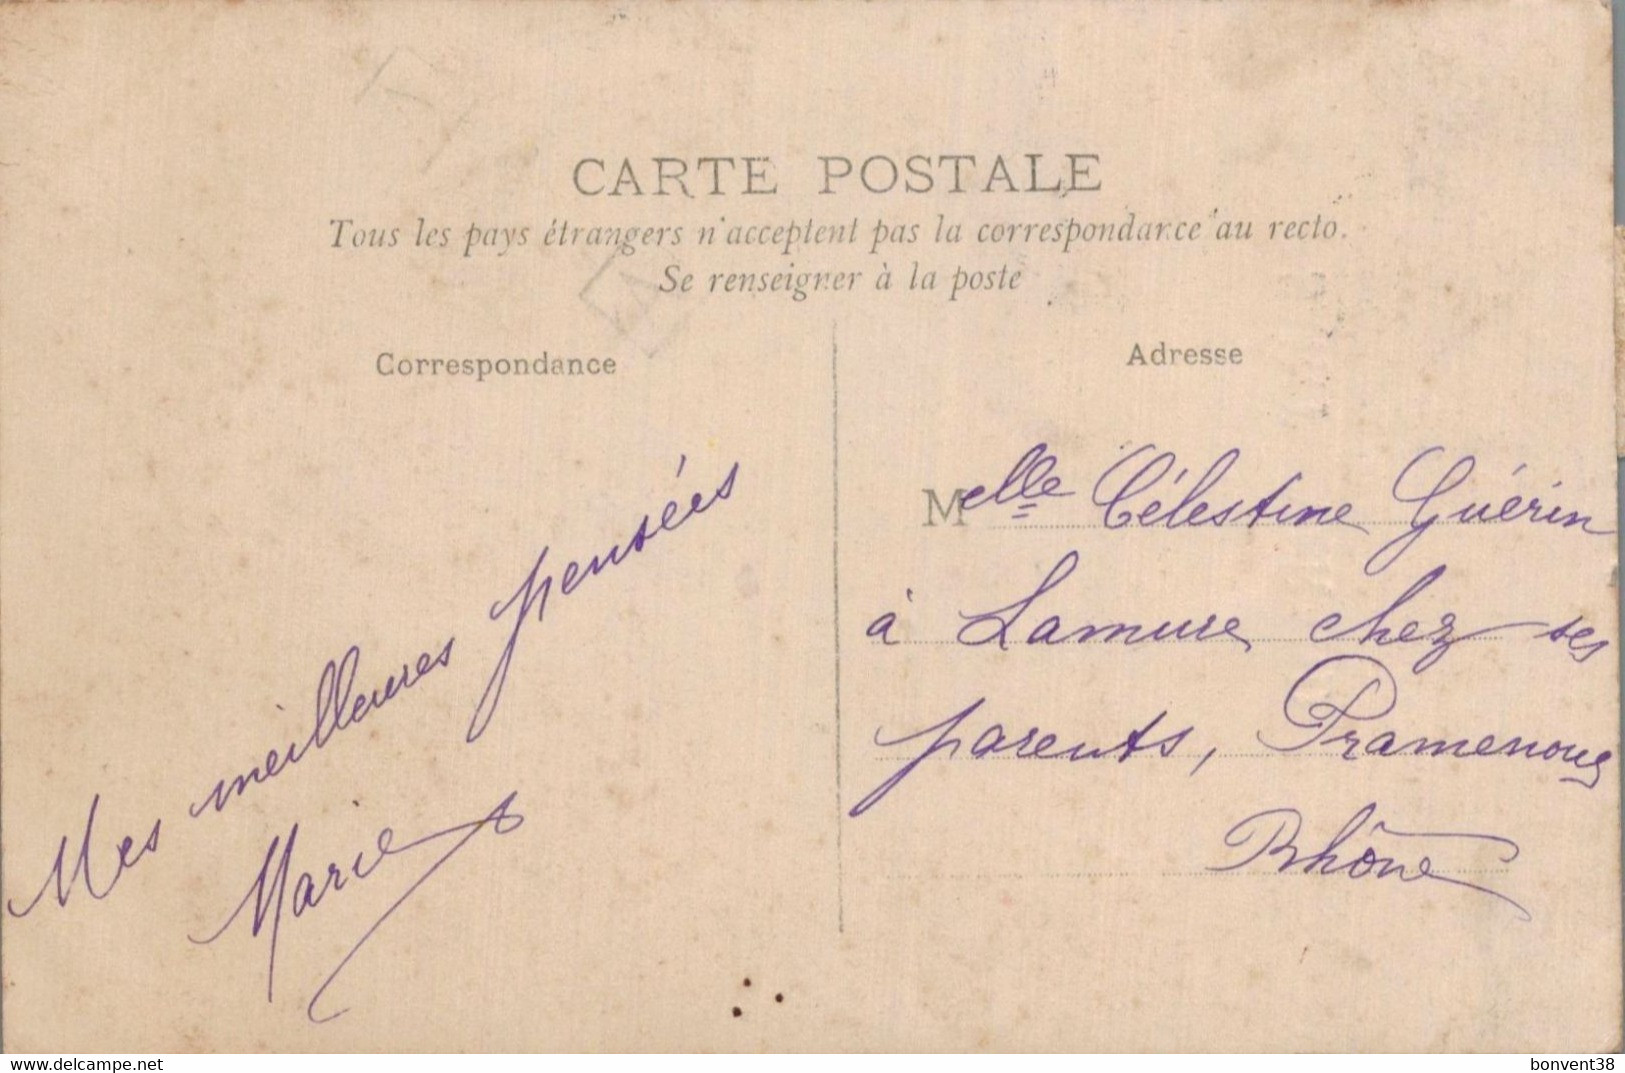 CARTE POSTALE
Tous les pays étrangers n'acceptent pas la correspondance au recto.
Se renseigner à la poste
Correspondance
Mes meilleures pensées
Marie
Adresse
Melle Célestine Guérin
à Lamure chez ses
parents, Pramenoux
Rhône
www.delcampe.net
bonvent38